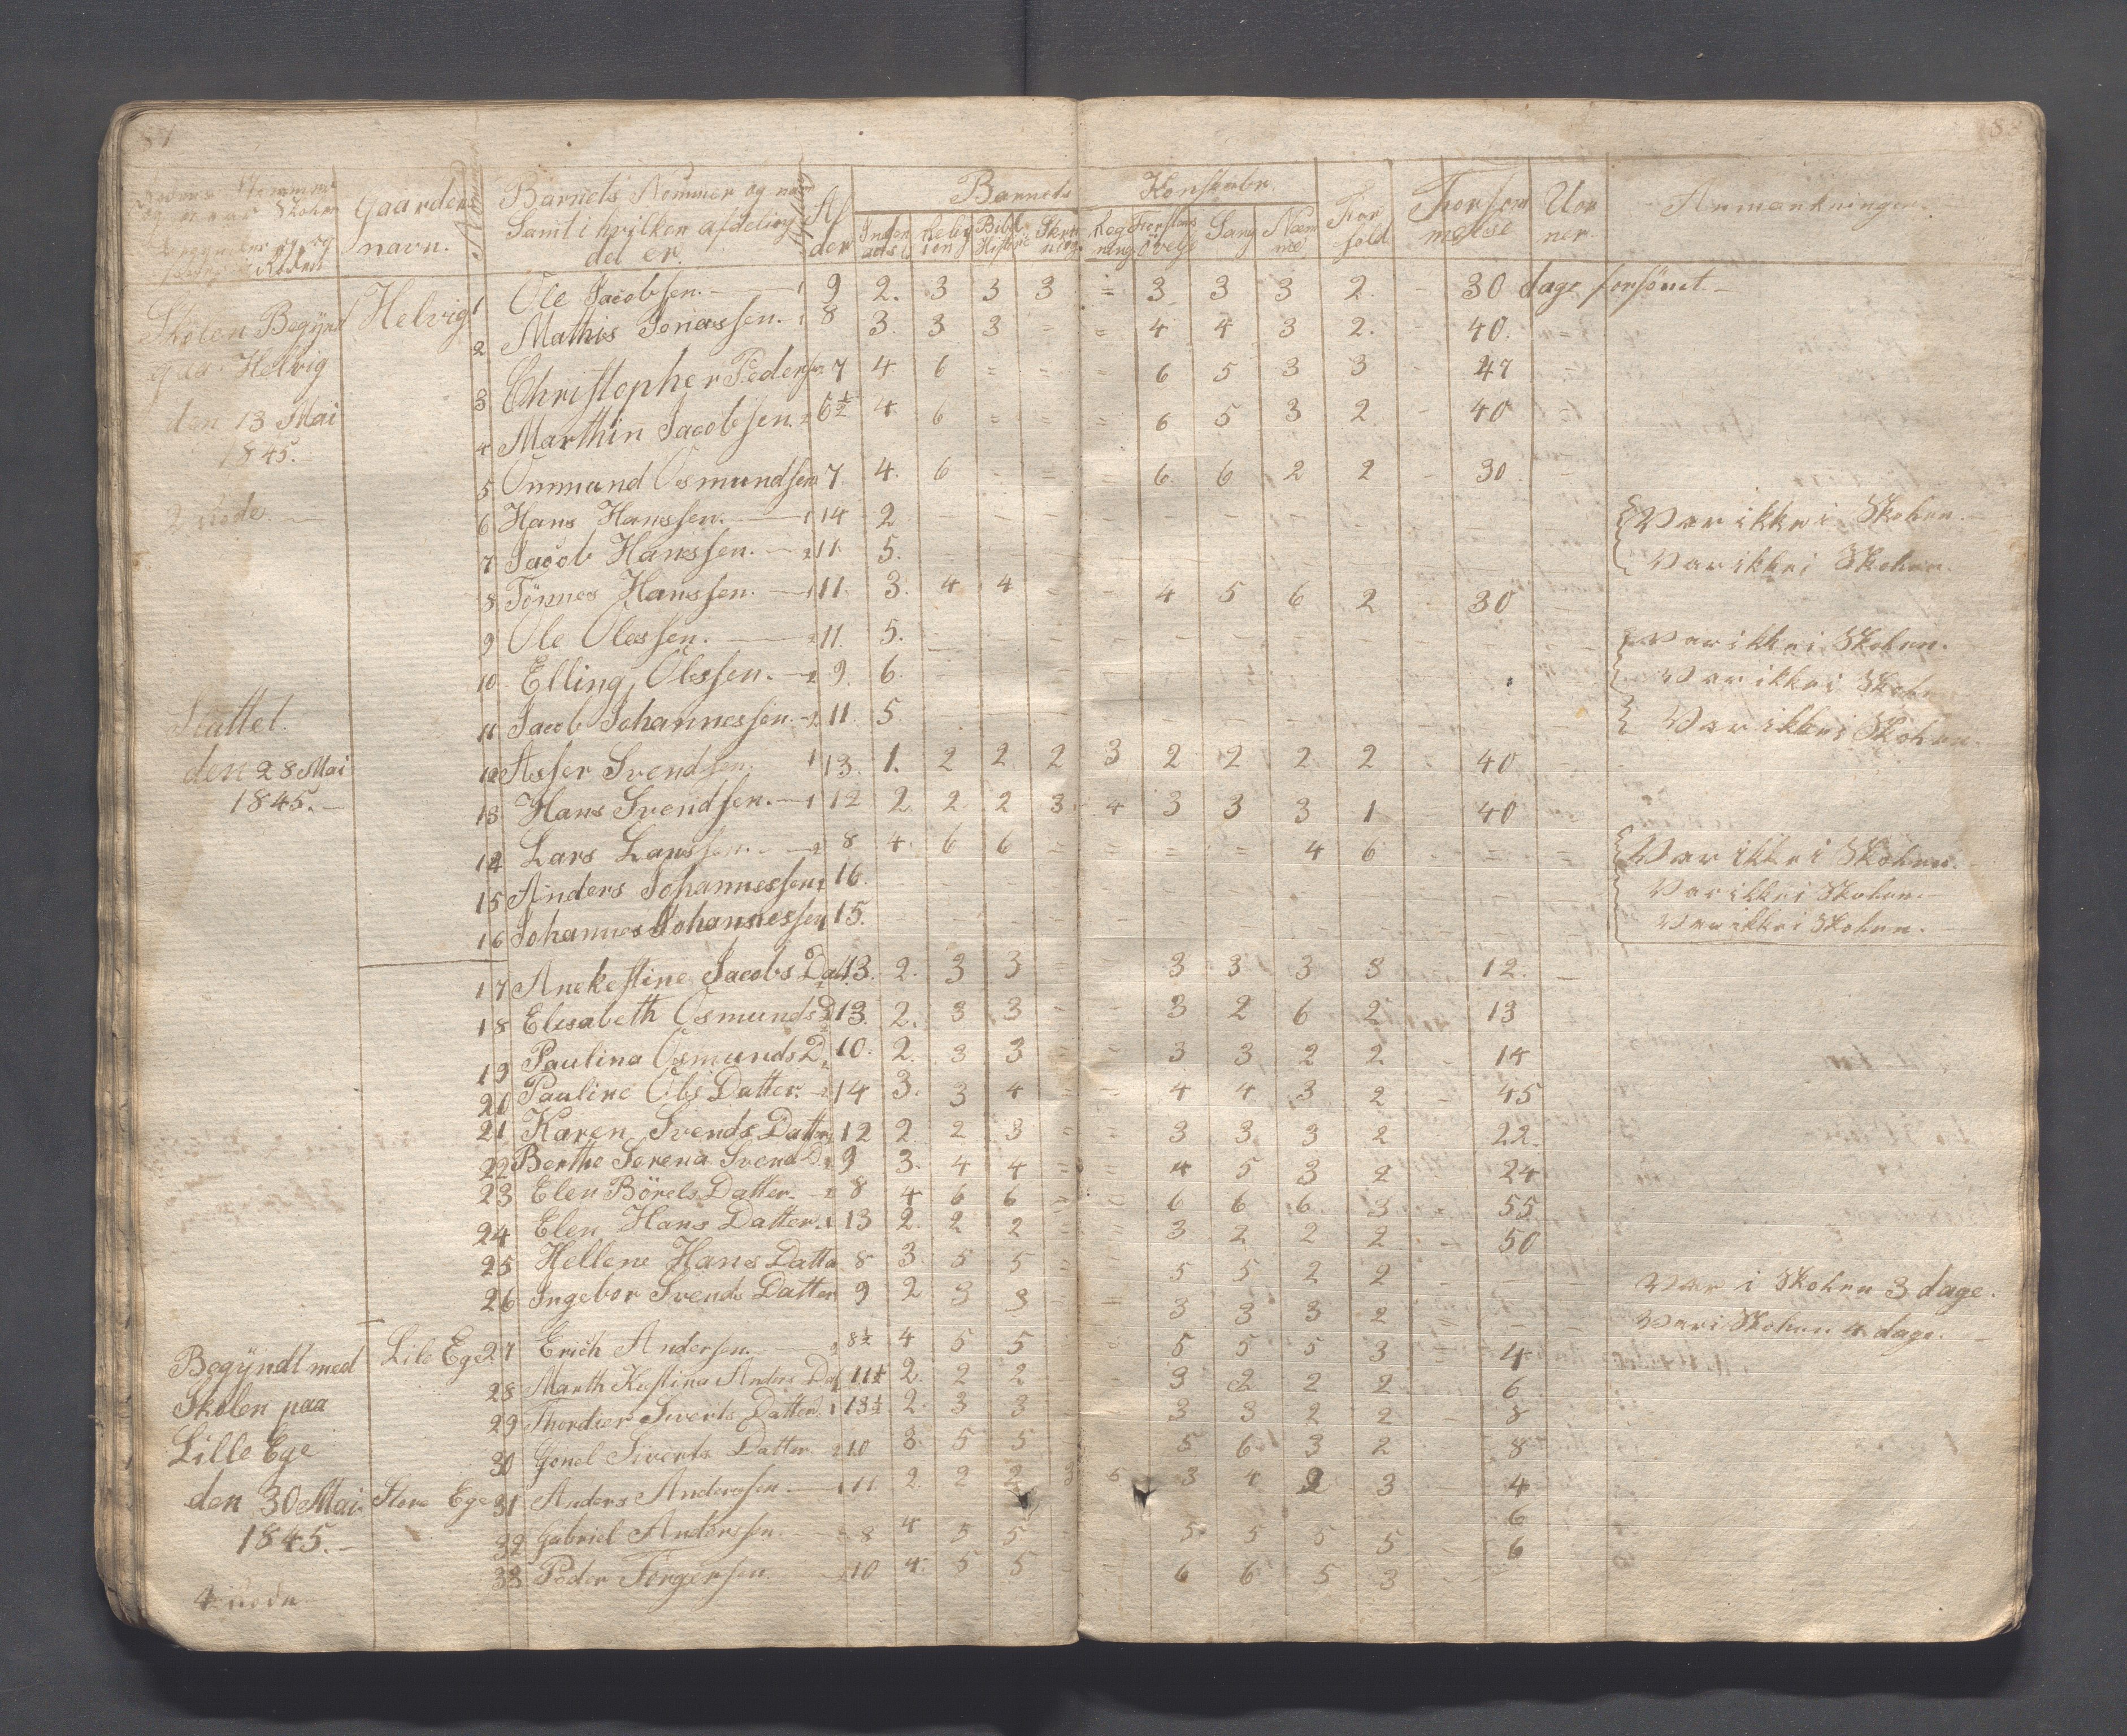 87
Gaardens navn.
Barnets Nommer og navn
Samt i hvilken afdeling
det er.
Al der
Barnets Kunskaber.
Inden ads
Relig ion
Bibl. Historie
Skriv ning
Reg ning
Forstands Øvelse
Sang
Næm me
For hold
Forsom melse
Uor ner.
Anmærkninger.
Skolen Begynt Helvig 1 Ole Jacobsen. — 1 9 2. 3 3 3 = 3 3 3 2. - 30 dage forsömt. -
paa Helvig 2 Mathis Jonassen. 1 8 3. 3 3 = = 4 4 3 2. - 40. =
3 Christopher Peders. 7 4 6 = - - 6 5 3 3 - 47
den 13 Mai 4 Marthin Jacobsen. 2 6½ 4. 6 = = = 6 5 3 2 - 40
1845.
5 Ommund Osmundsen 7. 4. 6 - = = 6 6 2 2 - 30
6 Hans Hanssen. — 1 14 2 Var ikke i Skolen.
7 Jacob Hanssen. — 2 11. 5. Var ikke i Skolen.
8 Tönnes Hanssen. — 1 11. 3. 4 4 = - 4 5 6 2 - 30
9 Ole Olassen. — 2 11. 5. Var ikke i Skolen.
10. Elling Olssen. — 2 9. 6. Var ikke i Skol
Stattel. 11 Jacob Johannessen. - 2 11. 5. Var ikke i Skolen
den 28 Mai 12 Asser Svendsen. 1 13. 1. 2 2 2 3 2 2 2 2 - 40
1845. - 13 Hans Svendsen. — 1 12 2. 2 2 3 4 3 3 3 1 - 40
14 Lars Larssen. - 2 8 4. 6 6 = = = = 4 6 - = = Var ikke i Skolen.
15 Anders Johannessen 1 16. Var ikke i Skolen.
16 Johannes Johannessen 15. Var ikke i Skolen.
17 Anekestine Jacobs Dat. 13. 2. 3 3 = - 3 3 3 3 12. -
18 Elisabeth Osmunds D 13. 2. 3 3 - - 3 2 6 2 13
19 Paulina Osmunds D. 10. 2. 3 3 = - 3 3 2 2 - 14
20 Pauline Ols Datter. - 2 14 3. 3 4 = - 4 4 3 2 - 45
21 Karen Svends Datter 12 2 2 3 = = 3 3 3 2 22.
22 Berthe Serena Svend D. 2 9 3. 4 4 = = 4 5 3 2 24
23 Elen Börels Datter. - 2 8 4 6 6 = = 6 6 6 3 55
24 Elen Hans Datter. 1 13 2. 2 2 = = 3 2 2 2 - 50
25 Hellene Hans Datte 8 3. 5 5 = 5 5 2 2 - - - Var i Skolen 3 dage.
26 Ingebor Svends Datter 9 2 3 3 - - 3 3 3 2 = - - Var i Skolen 4 dage. -
Begyndt med Lile Ege 27 Erich Andersen. — 2 8½ 4 5 5 = 5 5 5 3 = 4
Skolen paa 28 Marth Kestina Anders Dat 11½ 2. 2 2 - - 3 2 2 2 6
29 Thordier Siverts Datter. 1 13½ 2. 3 3 - 3 3 2 2 - 8
Lille Ege 30 Gonel Siverts Datter 2 10 3. 5 5 5 6 3 2 - 8
den 30 Mai. Store Ege 31 Anders Anderssen. — 1 11 2 2 2 3 5 3 4 2 3 - 4
1845. - 32 Gabriel Anderssen. - 8 4 5 5 5 5 5 5 - 6
33 Peder Torgersen. - 10 4. 5 5 6 6 5 3 - 6